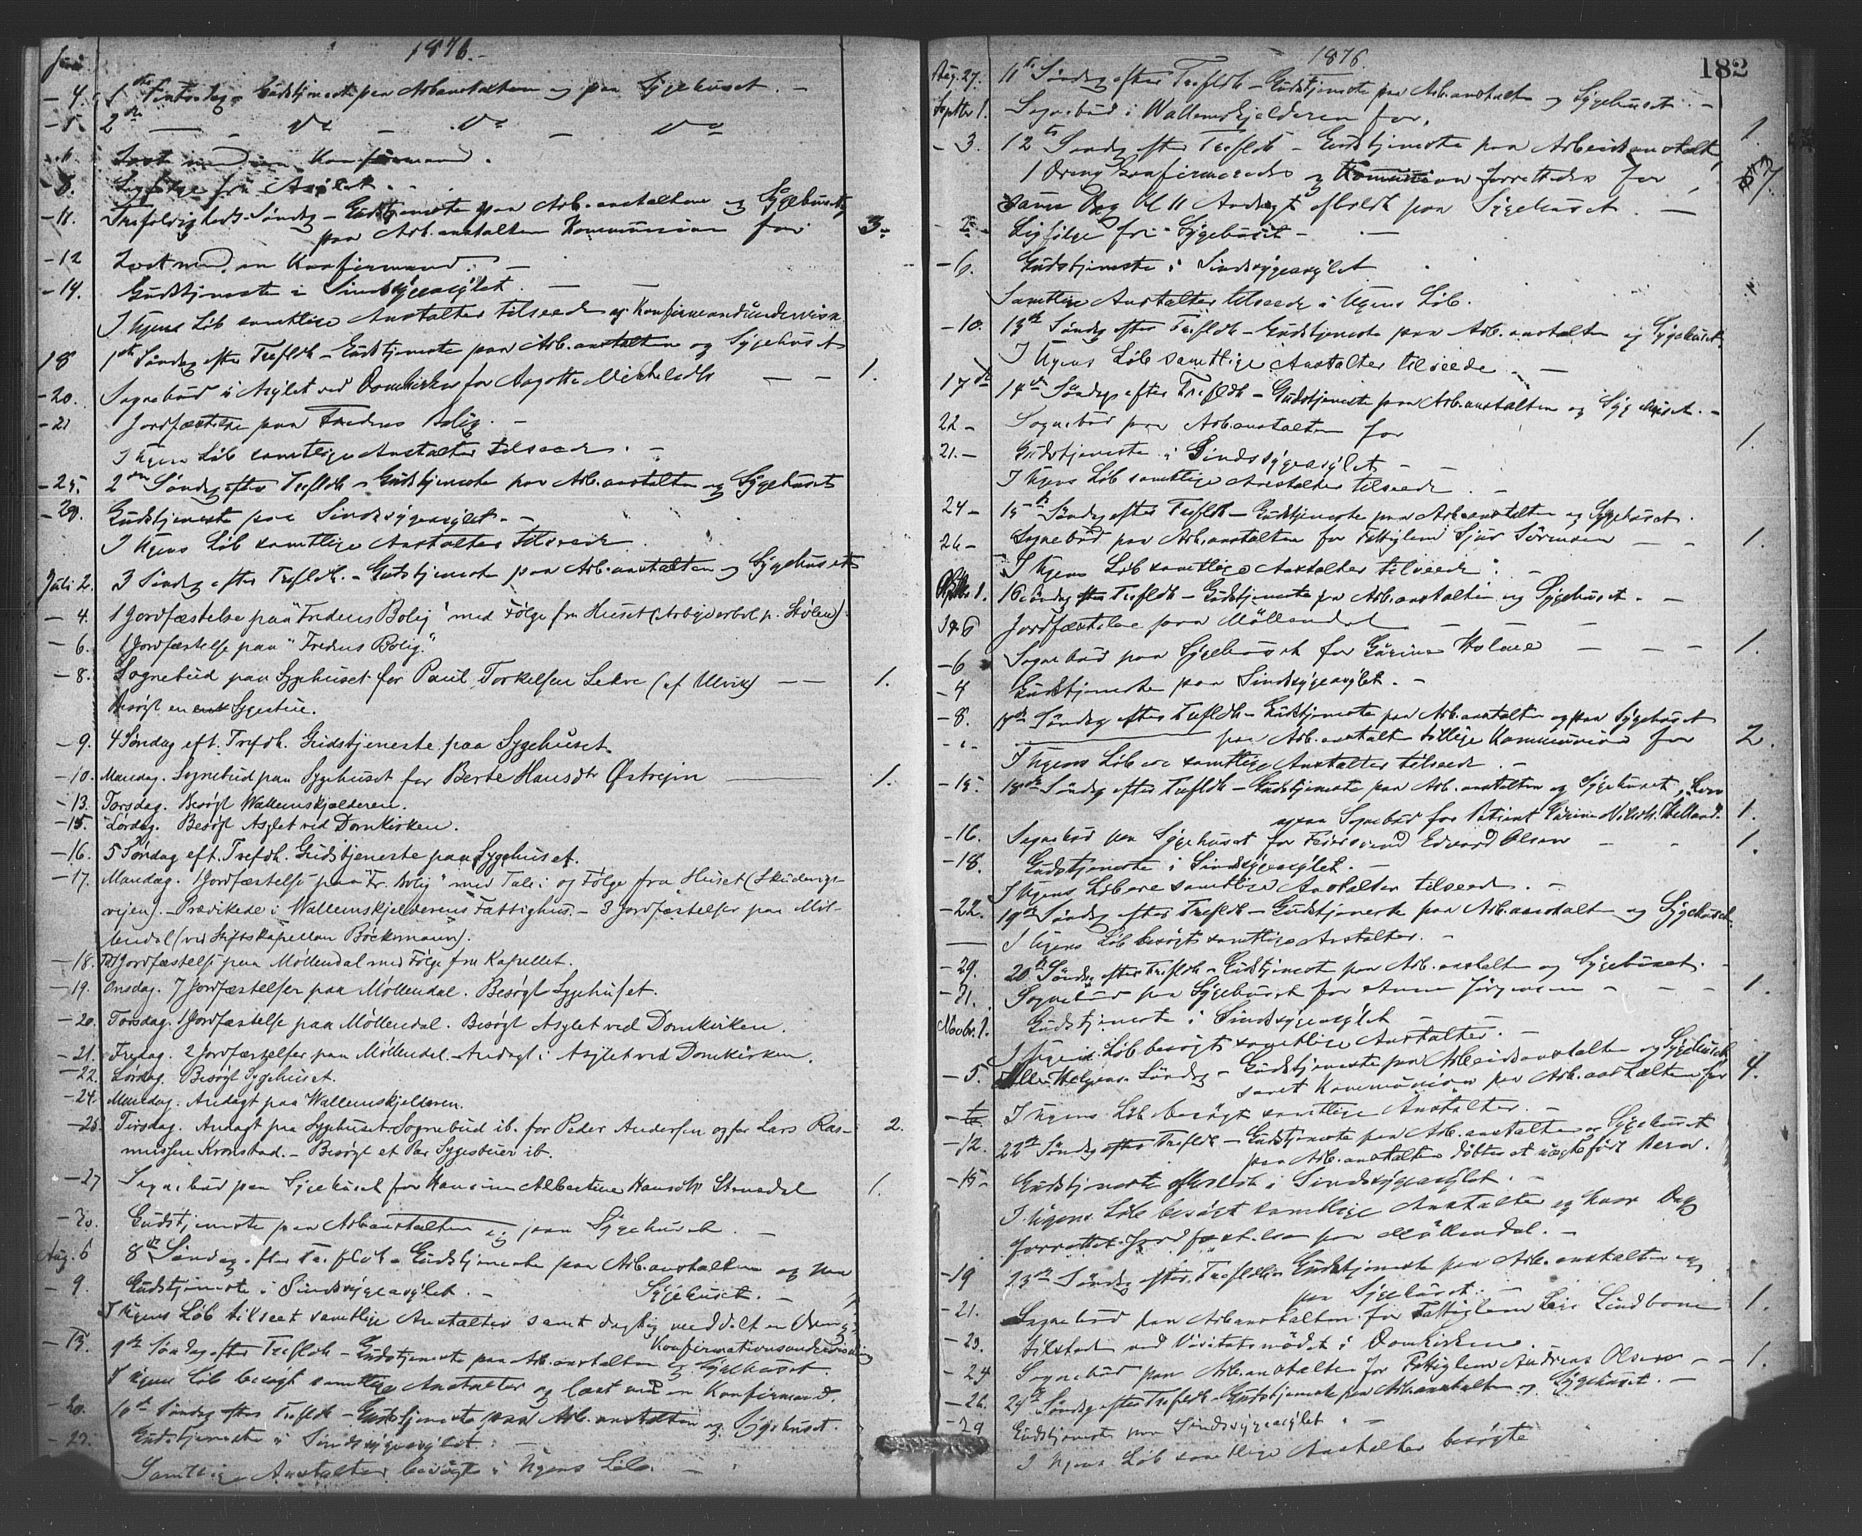 Juni 1876.
- 4. 1ste Pintsedag. Gudstjeneste paa Arb.anstalten og paa Sygehuset. -
- 5. 2den — - Do - Do - Do
- 6. Læst med en Konfirmand.
- 8. Ligfølge fra Asylet. -
- 11. Trefoldigheds Søndag - Gudstjeneste paa Arb.anstalten og Sygehuset,
paa Arb.anstalten Kommunion for 3.
- 12 Læst med en Konfirmand. -
- 14. Gudstjeneste i Sindssygeasylet. -
I Ugens Løb samtlige Anstalter tilseede og Konfirmandundervisn.
18 1ste Søndag efter Trefldh - Gudstjeneste paa Arb.anstalten og Sygehuset
- 20. Sognebud i Asylet ved Domkirken for Aagotte Mikkelsdtr — — 1.
- 21 Jordfæstelse paa Fredens Bolig. -
I Ugens Løb samtlige Anstalter tilseede. -
- 25. 2den Søndag efter Trefldh - Gudstjeneste paa Arb.anstalten og Sygehuset
- 29. Gudstjeneste paa Sindssygeasylet. -
I Ugens Løb samtlige Anstalter tilseede
Juli 2. 3 Søndag efter Trefldh. - Gudstjeneste paa Arb.anstalten og Sygehuset
- 4. 1 Jordfæstelse paa "Fredens Bolig" med Følge fra Huset (Arbeiderbol. p. Stølen).
- 6. 1 Jordfæstelse paa "Fredens Bolig."
- 8. Sognebud paa Sygehuset for Paul Torkelsen Lekve (af Ulvik) — — 1.
Besøgt en Sygestue.
- 9. 4 Søndag eft. Trefdh. Gudstjeneste paa Sygehuset.
- 10. Mandag. Sognebud paa Sygehuset for Berte Hansdtr Østrejm — 1.
- 13. Torsdag. Besøgt Wallemskjælderen.
- 15. Lørdag. Besøgt Asylet ved Domkirken.
- 16. 5 Søndag eft. Trefdh. Gudstjeneste paa Sygehuset.
- 17. Mandag. 1 Jordfæstelse paa "Fr. Bolig" med Tale i og Følge fra Huset (Skudevigs-
vejen). - Prædikede i Wallemskjelderens Fattighus. - 3 Jordfæstelser paa Møl-
lendal (ved Stiftskapellan Böckmann).
- 18. 1 Jordfæstelse paa Møllendal med Følge fra Kapellet.
- 19. Onsdag. 7 Jordfæstelser paa Møllendal. Besøgt Sygehuset.
- 20. Torsdag. 1 Jordfæstelse paa Møllendal. Besøgt Asylet ved Domkirken.
- 21. Fredag. 2 Jordfæstelser paa Møllendal. - Andagt i Asylet ved Domkirken.
- 22. Lørdag. Besøgt Sygehuset.
- 24. Mandag. Andagt paa Wallemskjelderen.
- 25. Tirsdag. Andagt paa Sygehuset. Sognebud ib. for Peder Andersen og for Lars Ras- 2.
mussen Kronstad. - Besøgt et Par Sygestuer ib.
- 27 Sognebud paa Sygehuset for Hansine Albertine Hansdtr Stenedal 1.
- 30. Gudstjeneste paa Arb.anstalten og paa Sygehuset. -
Aug. 6 8de Søndag efter Trefldh - Gudstjeneste paa Arb.anstalten og paa
- 9. Gudstjeneste i Sindssygeasylet. - Sygehuset. -
I Ugens Løb tilseet samtlige Anstalter samt daglig meddelt en Dreng
- 13. Konfirmationsundervisning
9de Søndag efter Trefldh - Gudstjeneste paa Arb.anstalten og Sygehuset.
I Ugens Løb besøgt samtlige Anstalter og læst med en Konfirmand.
- 20. 10de Søndag efter Trefldh - Gudstjeneste paa Arb.anstalten og Sygehuset.
- 23. Gudstjeneste i Sindssygeasylet. -
Samtlige Anstalter besøgte i Ugens Løb. -
1876. 182
Aug. 27. 11te Søndag efter Trefldh - Gudstjeneste paa Arb.anstalten og Sygehuset. -
Septbr 1. Sognebud i Wallemskjelderen for, 1.
- 3. 12te Søndag efter Trefldh - Gudstjeneste paa Arbeidsanstalten,
1 Dreng konfirmeredes og Kommunion forrettedes for 7.
samme Dag Kl 11 Andagt afholdt paa Sygehuset. —
Ligfølge fra Sygehuset - —
- 6. Gudstjeneste i Sindssygeasylet
Samtlige Anstalter tilseede i Ugens Løb.
- 10. 13de Søndag efter Trefldh - Gudstjeneste paa Arb.anstalten og Sygehuset.
I Ugens Løb samtlige Anstalter tilseede -
17de 14de Søndag efter Trefldh - Gudstjeneste paa Arb.anstalten og Sygehuset. -
22 - Sognebud paa Arb.anstalten for 1.
21. - Gudstjeneste i Sindssygeasylet - -
I Ugens Løb samtlige Anstalter tilseede -
24 - 15de Søndag efter Trefldh - Gudstjeneste paa Arb.anstalten og Sygehuset.
26 - Sognebud paa Arb.anstalten for Fattiglem Sjur Sørensen — — 1.
I Ugens Løb samtlige Anstalter tilseede. -
1. 16 Søndag efter Trefldh - Gudstjeneste paa Arb.anstalten og Sygehuset. -
Jordfæstelse paa Møllendal — — —
- 6 Sognebud paa Sygehuset for Gurine Holme — — — 1.
- 4 Gudstjeneste paa Sindssygeasylet. -
- 8. Søndag efter Trefldh - Gudstjeneste paa Arb.anstalten og paa Sygehuset
paa Arb.anstalt. tillige Kommunion for 2.
I Ugens Løb samtlige Anstalter tilseede -
- 15. 18de Søndag efter Trefldh - Gudstjeneste paa Arb.anstalten og Sygehuset,
Sognebud for Patient 1.
- 16. Sognebud paa Sygehuset for Edvard Olsen - - 1.
- 18. Gudstjeneste i Sindssygeasylet. -
I Ugens Løb ere samtlige Anstalter tilseede. -
- 22. 19de Søndag efter Trefldh - Gudstjeneste paa Arb.anstalten og Sygehuset
— I Ugens Løb besøgt samtlige Anstalter. -
- 29. 20de Søndag efter Trefldh - Gudstjeneste paa Arb.anstalten og Sygehuset. -
- 31. Sognebud paa Sygehuset for Anne Jørgensen - - - 1.
Novbr. 1. Gudstjeneste i Sindssygeasylet - -
I Ugens Løb besøgt samtlige Anstalter. -
- 5. Alle Helgens Søndag - Gudstjeneste paa Arbeidsanstalten og Sygehuset
samt Kommunion paa Arb.anstalten for 4.
I Ugens Løb besøgt samtlige Anstalter. -
- 12. 22de Søndag efter Trefldh - Gudstjeneste paa Arb.anstalten og Sygehuset
paa Arb.anstalten døbtes et uægtefødt Barn.
- 15 - Gudstjeneste afholdt i Sindssygeasylet. -
I Ugens Løb besøgt samtlige Anstalter og hver Dag
forrettet Jordfæstelse paa Møllendal. -
- 19 23de Søndag efter Trefldh - Gudstjeneste paa Arb.anstalten og
paa Sygehuset. -
- 21. Sognebud paa Arb.anstalten for Fattiglem Lindbom 1.
- 23. Tilstede ved Visitatsmødet i Domkirken.
- 24 Sognebud paa Arb.anstalten for Fattiglem Andreas Olsen - - 1.
- 26. 24de Søndag efter Trefldh - Gudstjeneste paa Arb.anstalten og Sygehuset. -
- 29 Gudstjeneste paa Sindssygeasylet. -
I Ugens Løb samtlige Anstalter besøgte